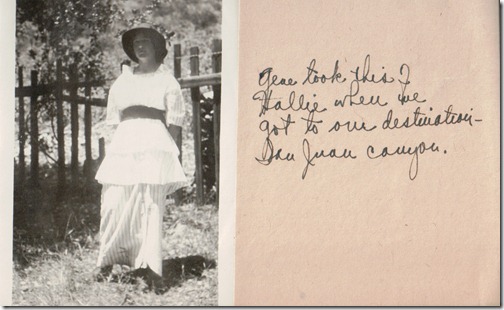 Gene took this of
Hallie when we
got to our destination-
San Juan canyon.